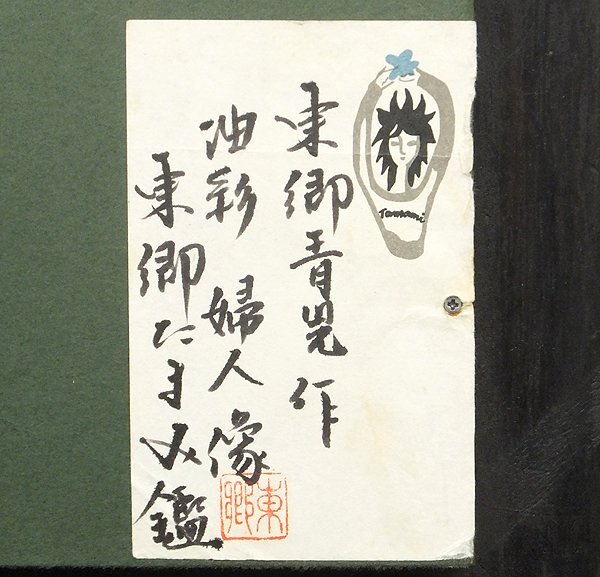 東郷青児作
油彩 婦人像
東郷たまみ鑑
Tamami
東郷